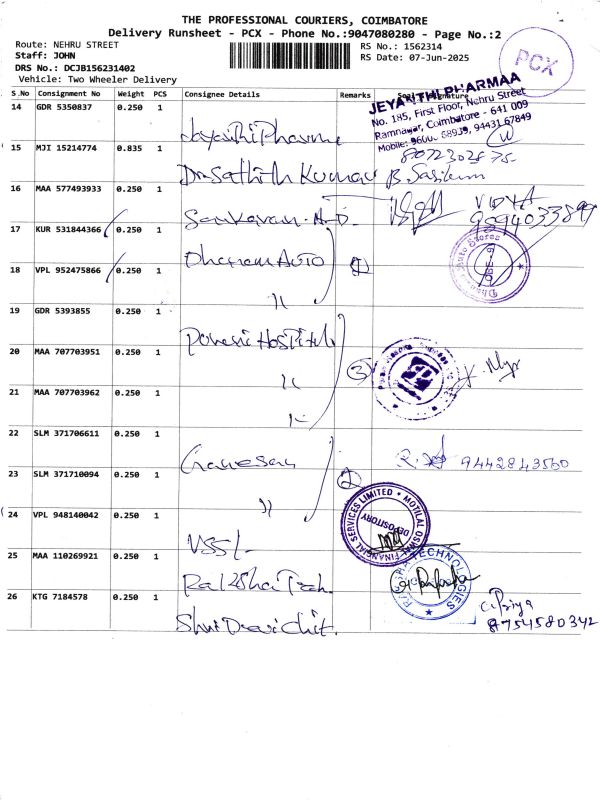 THE PROFESSIONAL COURIERS, COIMBATORE
Delivery Runsheet - PCX - Phone No.:9047080280 - Page No.:2
Route: NEHRU STREET
Staff: JOHN
DRS No.: DCJB156231402
Vehicle: Two Wheeler Delivery
RS No.: 1562314
RS Date: 07-Jun-2025
PCX
S.No Consignment No Weight PCS Consignee Details Remarks
JEYANTHI PHARMAA
No. 185, First Floor, Nehru Street
Ramnagar, Coimbatore - 641 009
14 GDR 5350837 0.250 1
15 MJI 15214774 0.835 1 Dr. Sathish Kumar
16 MAA 577493933 0.250 1 VIDYA
9094033899
17 KUR 531844366 0.250 1 Dhanam Auto
18 VPL 952475866 0.250 1 "
19 GDR 5393855 0.250 1
20 MAA 707703951 0.250 1 " 3
21 MAA 707703962 0.250 1 "
22 SLM 371706611 0.250 1 Ganesan 9442843560
23 SLM 371710094 0.250 1 " 2
24 VPL 948140042 0.250 1
MOTILAL OSWAL FINANCIAL SERVICES LIMITED
DEPOSITORY
25 MAA 110269921 0.250 1
TECHNOLOGIES
26 KTG 7184578 0.250 1 Shri Devi Chit.
C. Priya
8754580342